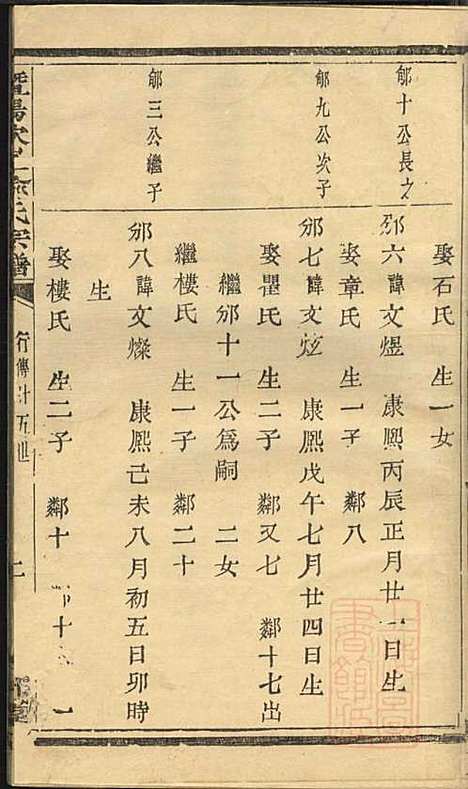 娶石氏 生一女
郇十公長之
邠六諱文煜 康熙丙辰正月廿一日生
娶章氏 生一子 鄰八
郇九公次子
邠七諱文炫 康熙戊午七月廿四日生
娶瞿氏 生二子 鄰又七 鄰十七出
繼邠十一公爲嗣 二女
繼樓氏 生一子 鄰二十
郇三公繼子
邠八諱文燦 康熙己未八月初五日卯時
生
娶樓氏 生二子 鄰十 十 一
暨陽次 俞氏宗譜
行傳廿五世
二